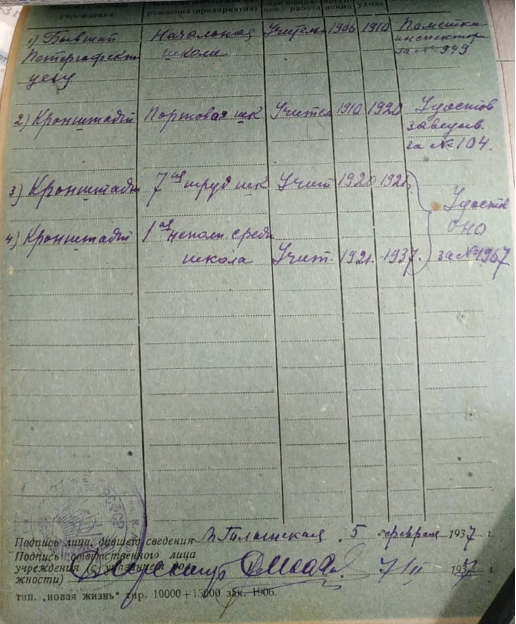 1) Бывший Начальная Учитель 1906 1910 Пометка
Петергофский школа инспектора
уезд за № 949
2) Кронштадт Портовая шк Учител 1910 1920 Удостов
заведыв.
за № 104.
3) Кронштадт 7ая труд шк Учит 1920 1921
Удостов
4) Кронштадт 1ая неполн. средн
школа Учит. 1921. 1937. за № 1967
Подпись лица, давшего сведения 5 февраля 1937 г.
Подпись ответственного лица
учреждения (с указанием
жности) 7/II 1937 г.
тип. „новая жизнь" тир. 10000+15000 зак. 1906.